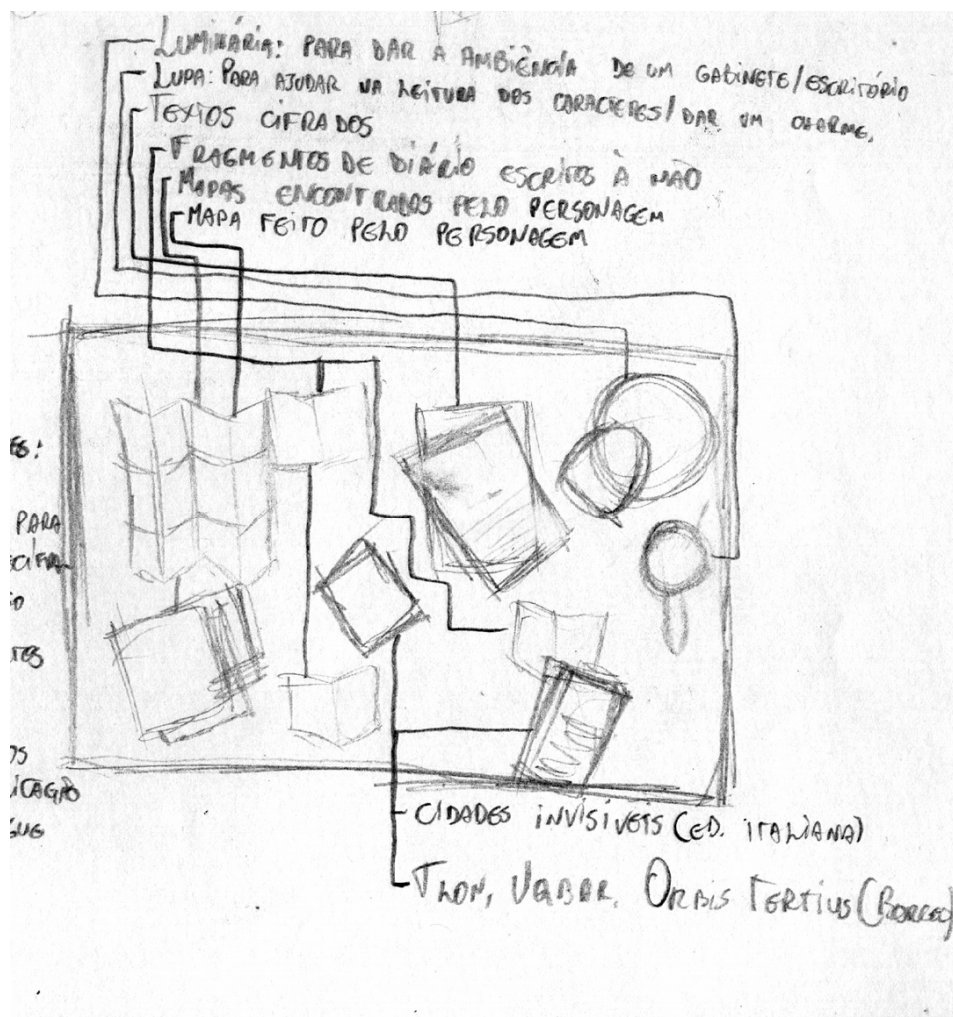 LUMINÁRIA: PARA DAR A AMBIÊNCIA DE UM GABINETE/ESCRITÓRIO
LUPA: PARA AJUDAR NA LEITURA DOS CARACTERES/DAR UM CHARME.
TEXTOS CIFRADOS
FRAGMENTOS DE DIÁRIO ESCRITOS À MÃO
MAPAS ENCONTRADOS PELO PERSONAGEM
MAPA FEITO PELO PERSONAGEM
ES:
PARA
CIFRA
TES
OS
ICAÇÃO
GUE
CIDADES INVISÍVEIS (ED. ITALIANA)
TLON, UQBAR, ORBIS TERTIUS (BORGES)